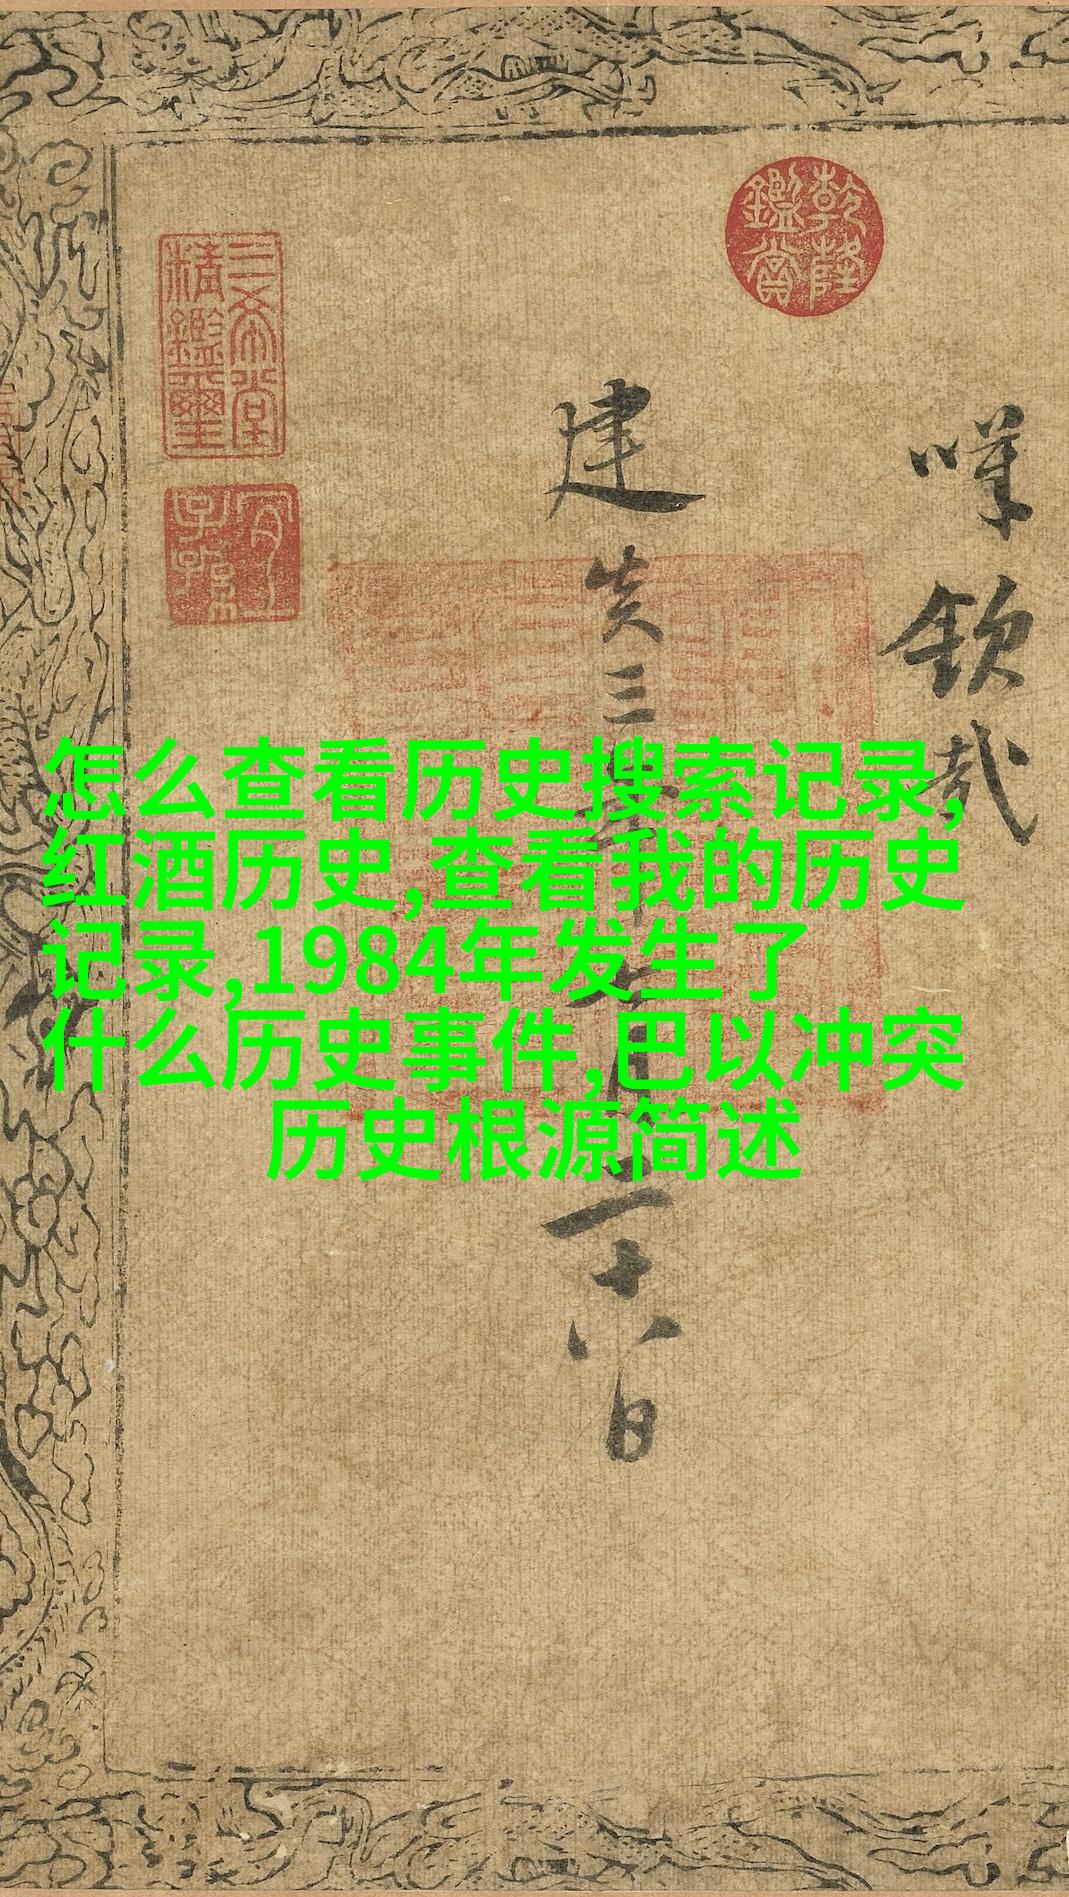 怎么查看历史搜索记录,
红酒历史,查看我的历史
记录,1984年发生了
什么历史事件,巴以冲突
历史根源简述
乾隆鑑賞
三希堂精鑑璽
宜子孫
嘆欽哉
建炎三年七月二十八日